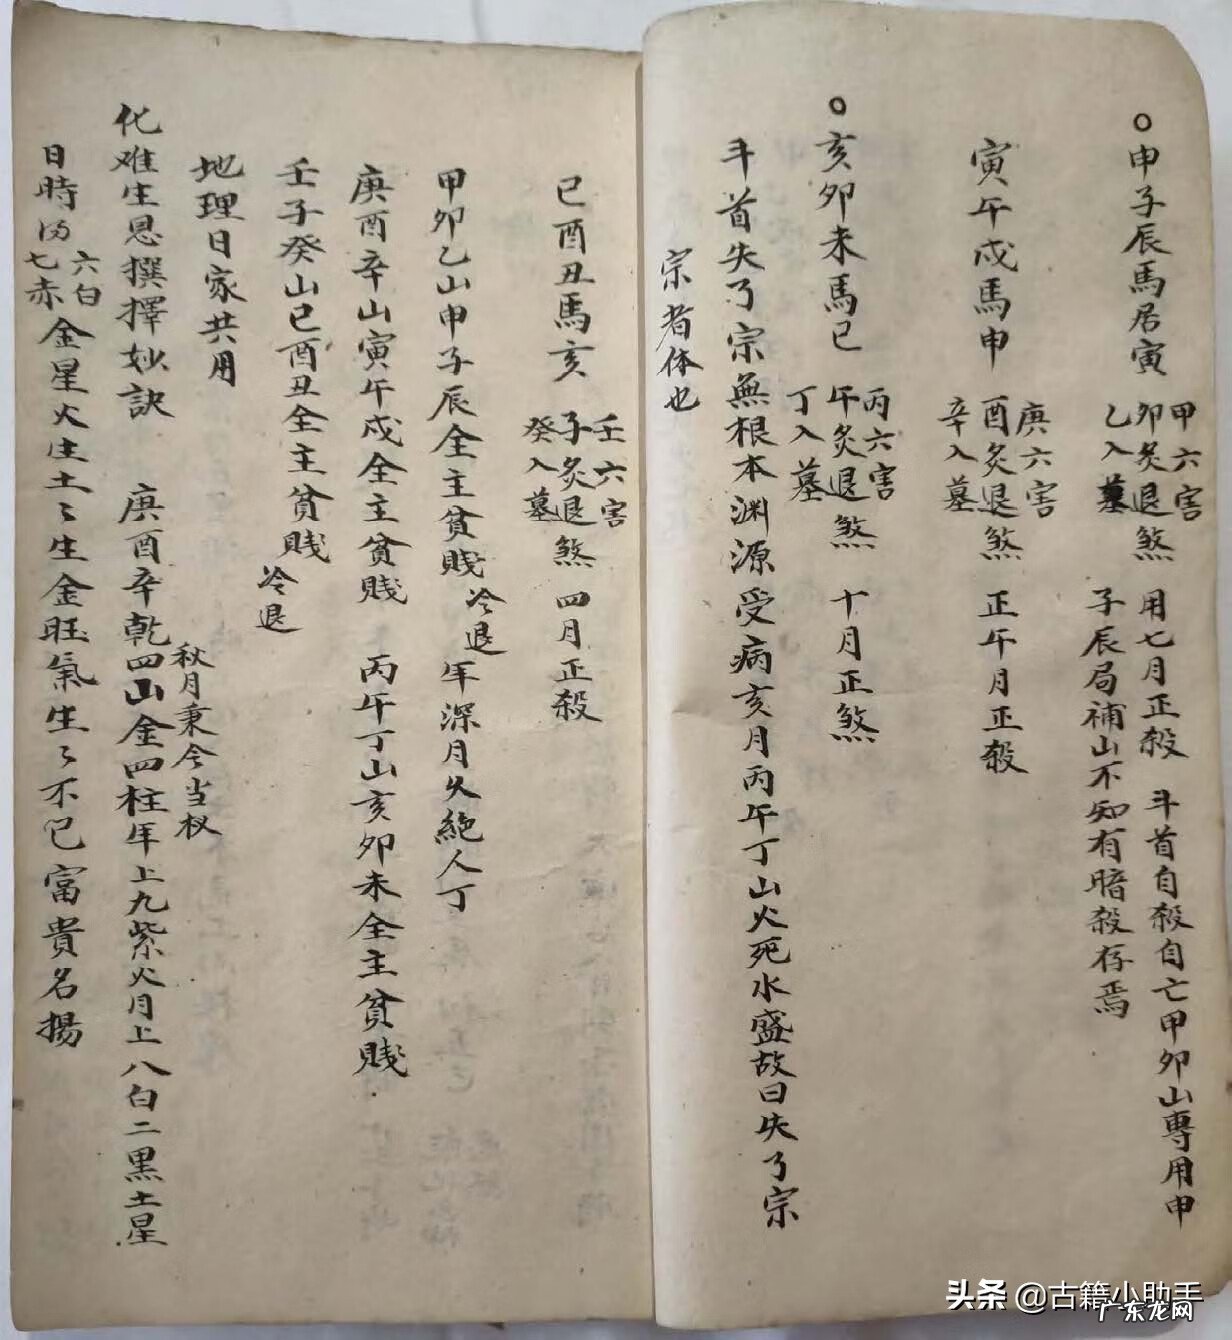 ○申子辰馬居寅
甲六害
卯灸退煞
乙入墓
用七月正殺
斗首自殺自亡甲卯山專用申
子辰局補山不知有暗殺存焉
寅午戌馬申
庚六害
酉灸退煞
辛入墓
正午月正殺
○亥卯未馬巳
丙六害
午灸退煞
丁入墓
十月正煞
斗首失了宗無根本渊源受病亥月丙午丁山火死水盛故曰失了宗
宗者体也
巳酉丑馬亥
壬六害
子灸退煞
癸入墓
四月正殺
甲卯乙山申子辰全主貧賤
冷退
年深月久絕人丁
庚酉辛山寅午戌全主貧賤 丙午丁山亥卯未全主貧賤
壬子癸山巳酉丑全主貧賤
冷退
地理日家共用
化难生恩撰擇妙訣
秋月秉令当权
庚酉辛乾四山金四柱年上九紫火月上八白二黑土星
日時得
六白
七赤
金星火生土〻生金旺氣生〻不已富貴名揚
头条 @古籍小助手
广东龙网